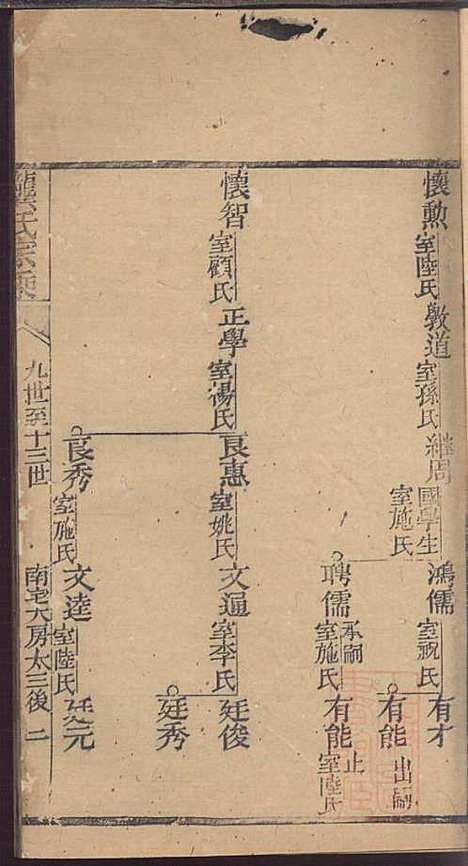 懷勲 室陸氏 敎道 室孫氏 繼周 國學生 室施氏 鴻儒 室祝氏 有才
有能 出嗣
聘儒 承嗣 室施氏 有能 止 室陸氏
懷智 室顧氏 正學 室湯氏 良惠 室姚氏 文通 室李氏 廷俊
廷秀
良秀 室施氏 文逵 室陸氏 廷元
龔氏宗乘 九世至十三世 南宅大房太三後 二